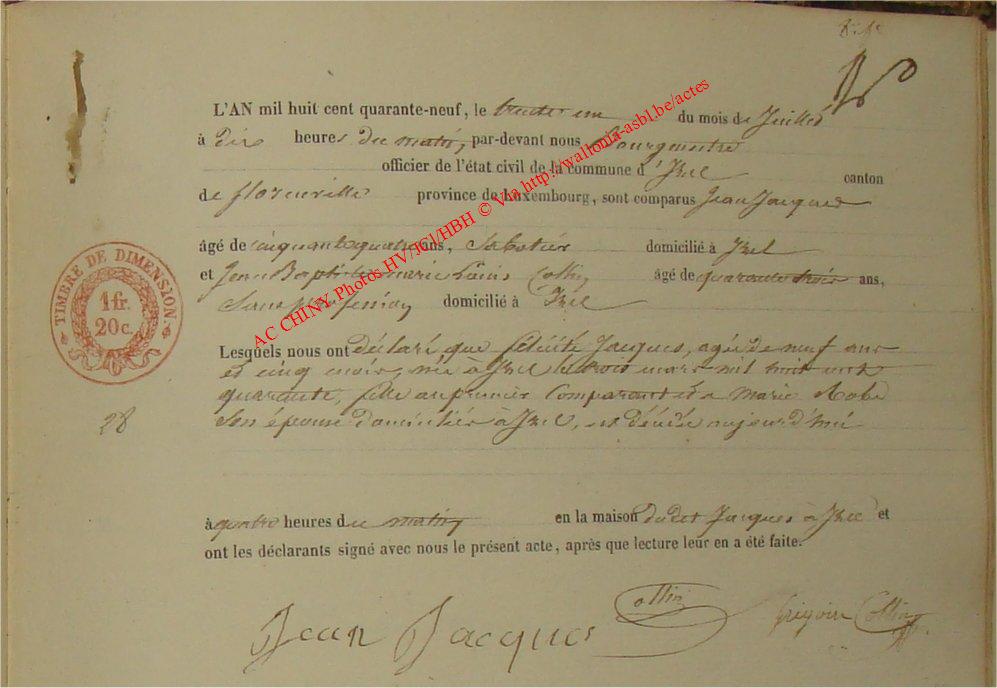 L'AN mil huit cent quarante-neuf, le trente un du mois de Juillet
à dix heures du matin, par-devant nous Bourgmestre
officier de l'état civil de la commune d'Izel canton
de florenville province de Luxembourg, sont comparus Jean Jacques
âgé de cinquante quatre ans, Sabotier domicilié à Izel
et Jean Baptiste marie Louis Collin âgé de quarante trois ans,
Sans profession domicilié à Izel
Lesquels nous ont déclaré que félicité Jacques, agée de neuf ans
et cinq mois, née à Izel le trois mars mil huit cent
quarante, fille au premier Comparant et a Marie Robe
Son épouse domiciliés à Izel, est décédée aujourd'hui
à quatre heures du matin en la maison dudit Jacques à Izel et
ont les déclarants signé avec nous le présent acte, après que lecture leur en a été faite.
Jean Jacques Collin Grégoire Collin
TIMBRE DE DIMENSION.
1 fr.
20 c.
28
AC CHINY Photos HV/JCl/HBH © Via http://wallonia-asbl.be/actes